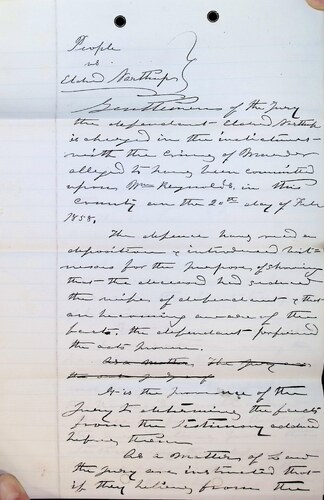 People
vs
Elded Northrup
Gentlemen of the Jury
the defendant Elded Northrup
is charged in the indictment
with the Crime of Murder
alleged to have been committed
upon Wm Reynolds, in this
County on the 20th day of Feb
1858.
The defence have read a
deposition & introduced wit-
nesses for the purpose of showing
that the deceased had seduced
the wife of defendant & that
on becoming aware of the
facts, the defendant
the acts proven.
As a matter The Jury
It is the province of the
Jury to determine the facts
from the testimony adduced
before them
As a Matter of Law
the Jury are instructed that
if they believe from the